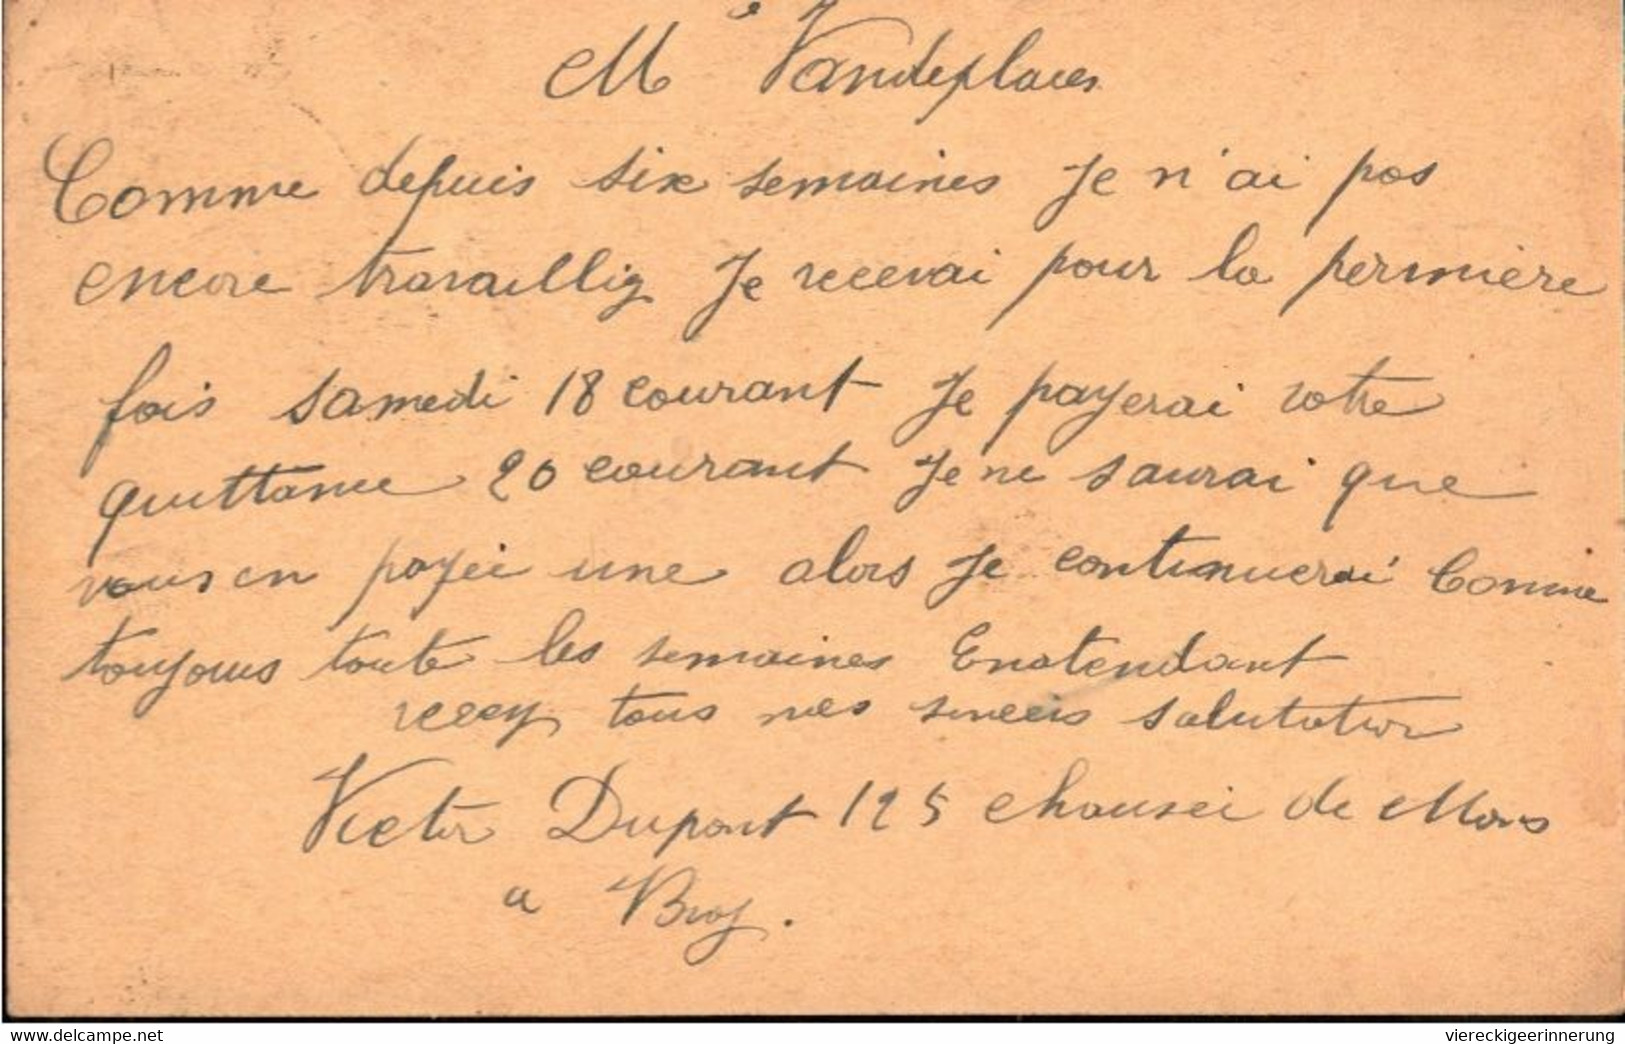 M Vandeplaces
Comme depuis six semaines Je n'ai pas
encore travaillig Je recevai pour la permière
fois samedi 18 courant Je payerai votre
quittance 20 courant Je ne saurai que
vous en payée une alors Je continuerai Comme
toujours toute les semaines Enatendant
recey tous mes sinceis salutation
Victor Dupont 125 chausei de Mons
a
www.delcampe.net
viereckigeerinnerung